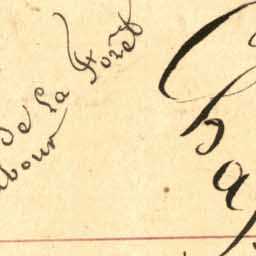 de La Forêt
bour
Cha